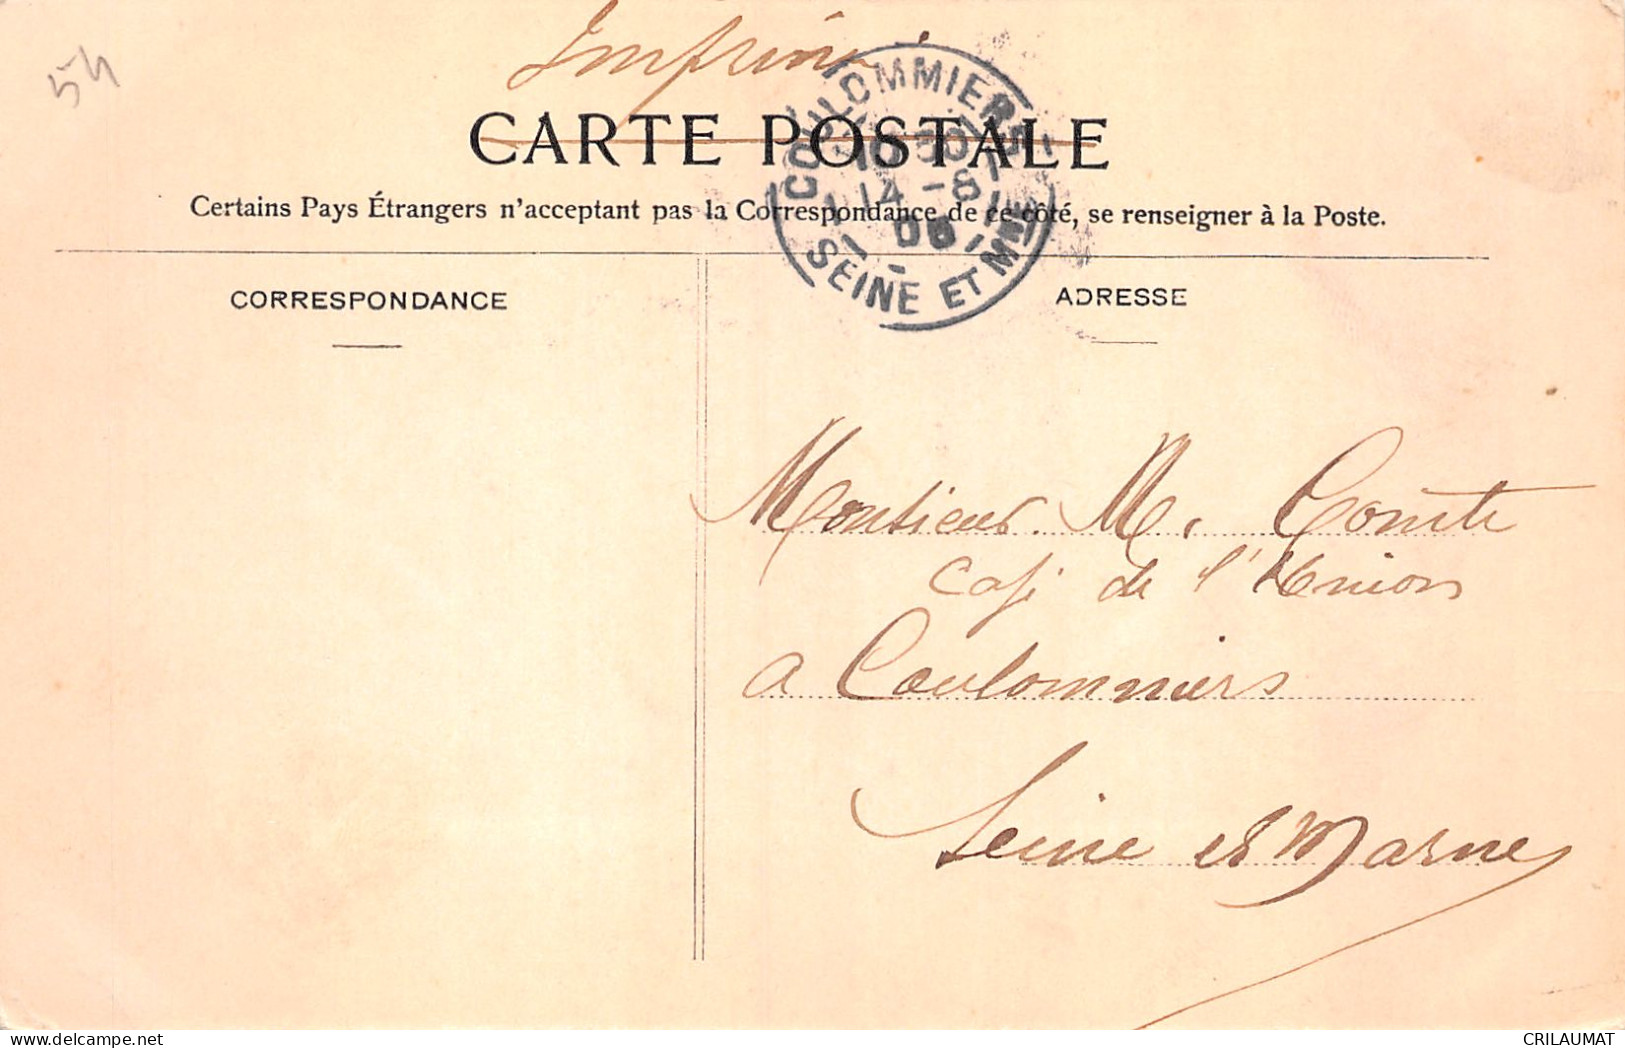 54
Imprimé
CARTE POSTALE
COULOMMIERS
14 -8
SEINE ET MNE
Certains Pays Étrangers n'acceptant pas la Correspondance de ce côté, se renseigner à la Poste.
CORRESPONDANCE
ADRESSE
Monsieur M. Comte
Café de l'Union
a Coulommiers
Seine et Marne
delcampe.net
CRILAUMAT